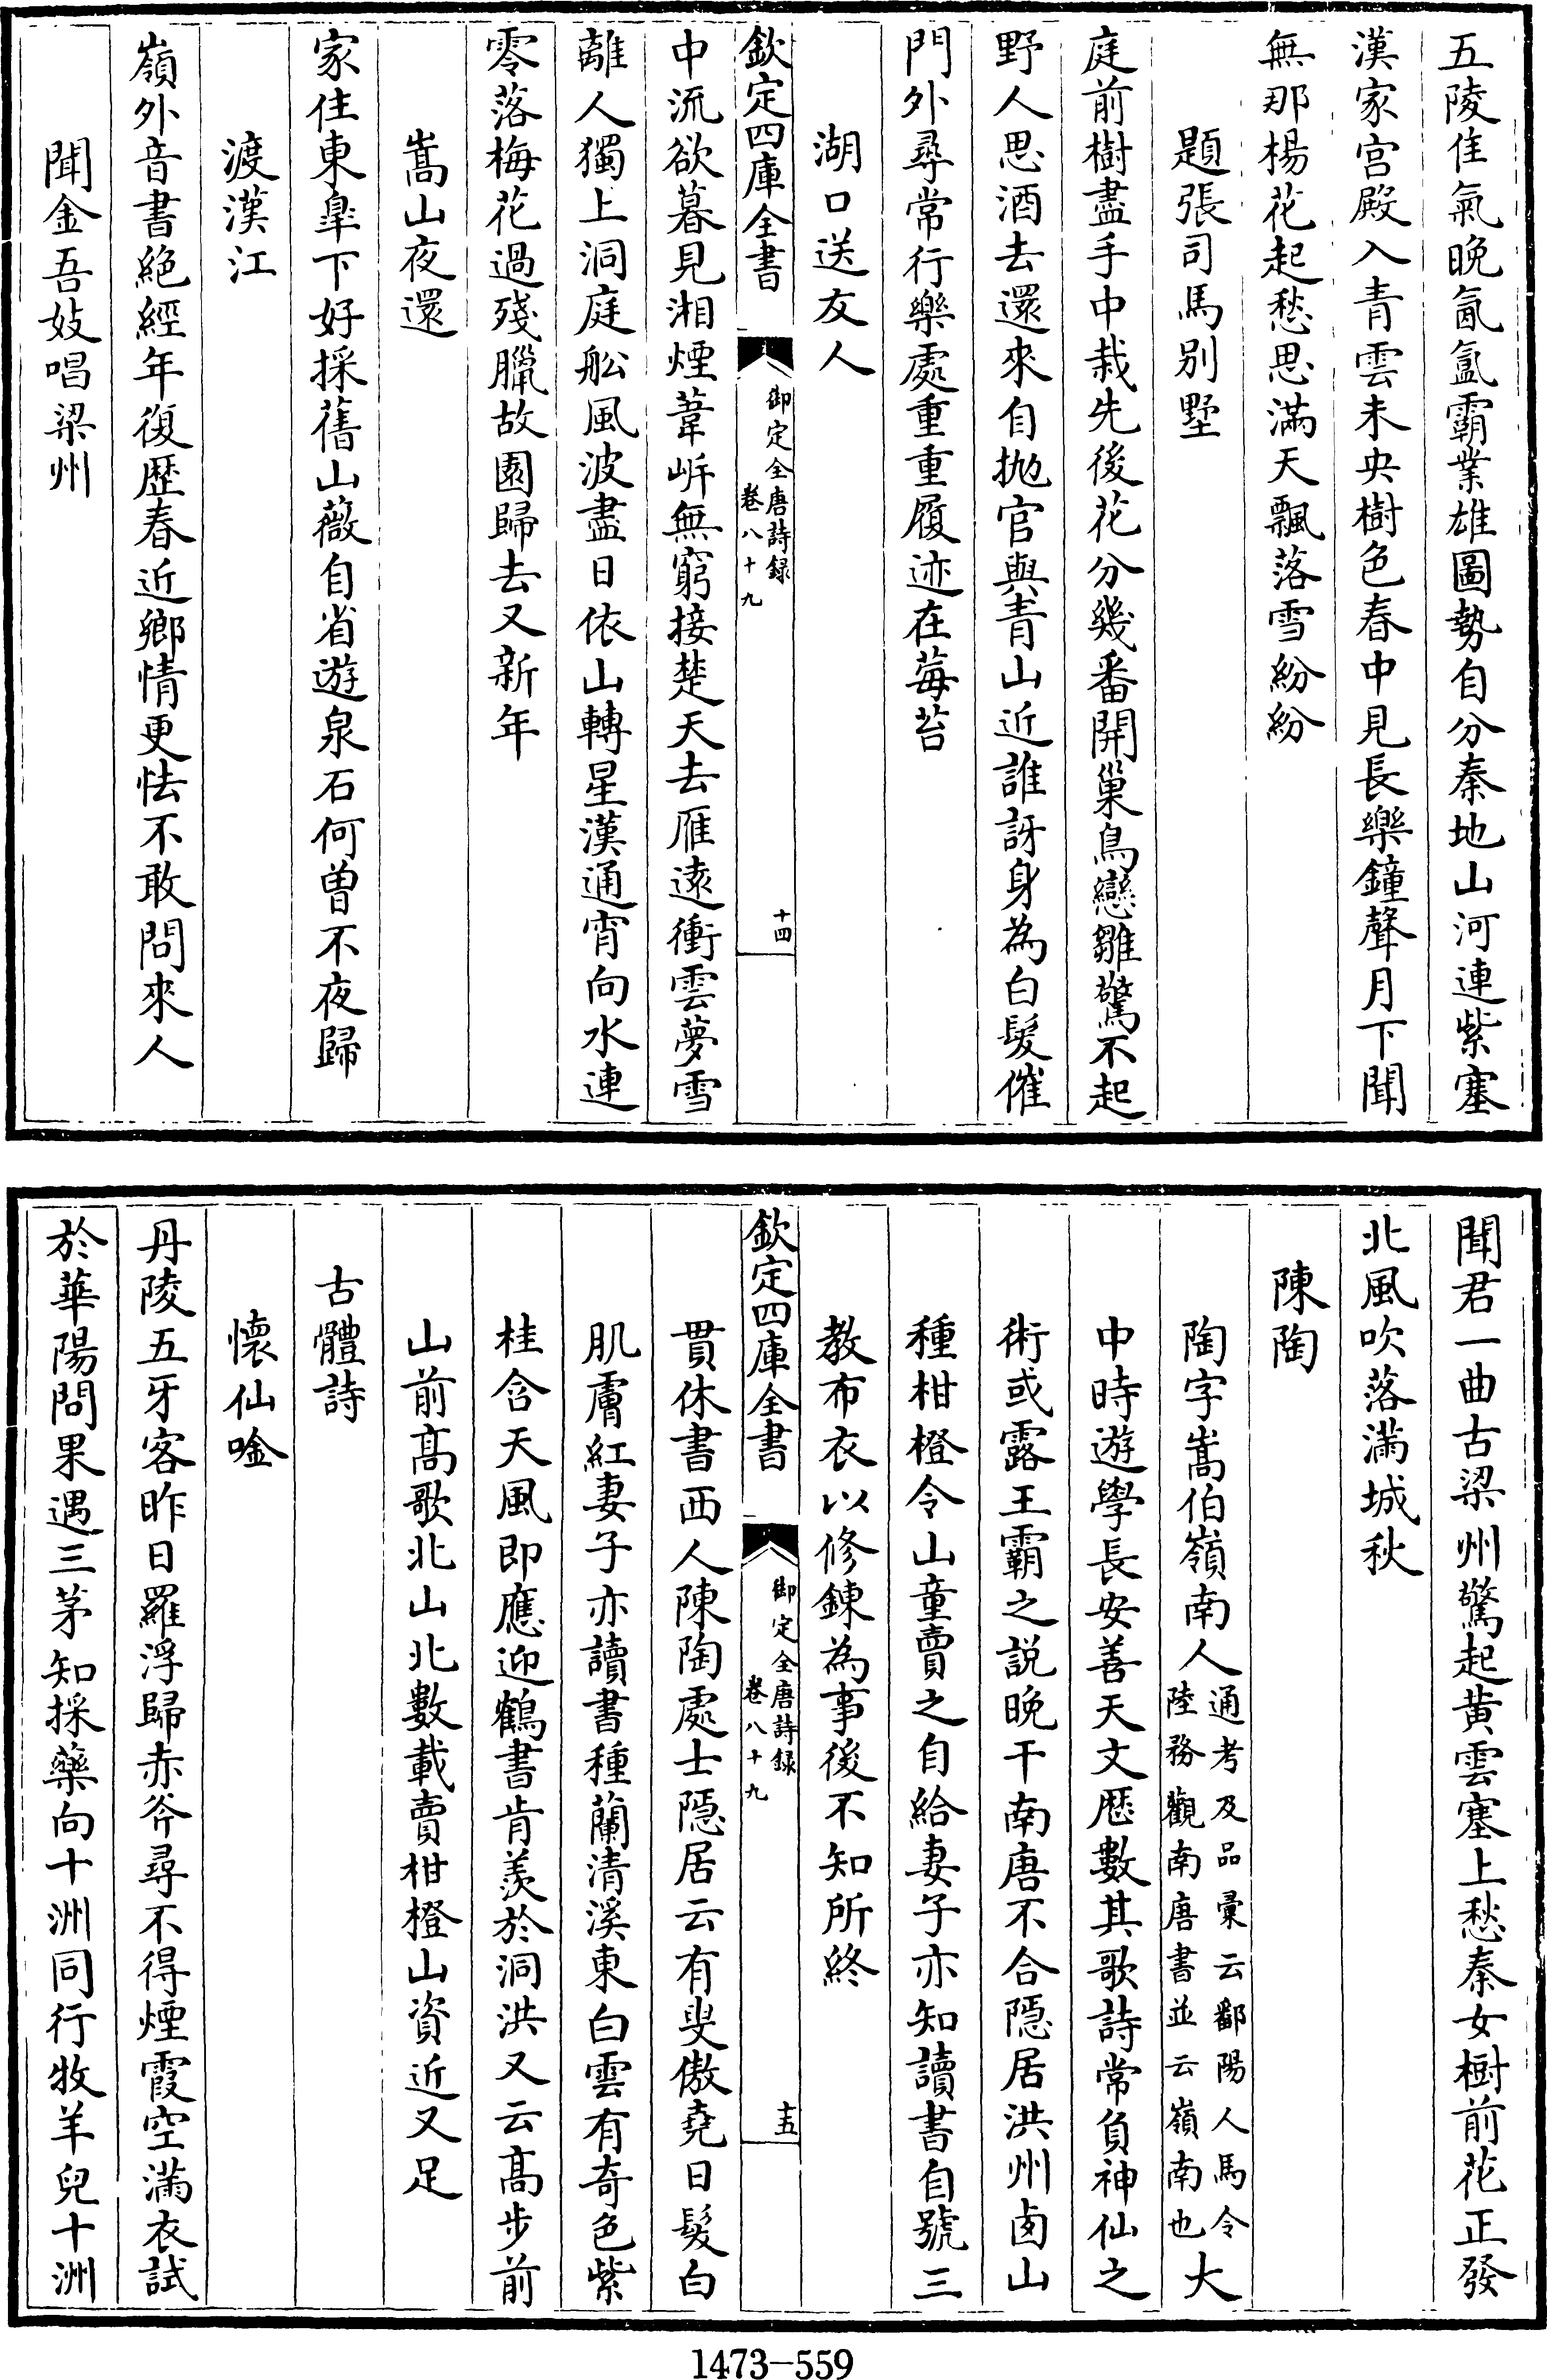 五陵佳氣晚氤氲霸業雄圖勢自分秦地山河連紫塞
漢家宫殿入青雲未央樹色春中見長樂鐘聲月下聞
無那楊花起愁思滿天飄落雪紛紛
題張司馬别墅
庭前樹盡手中栽先後花分幾番開巢鳥戀雛驚不起
野人思酒去還來自抛官與青山近誰訝身為白髮催
門外尋常行樂處重重履迹在莓苔
湖口送友人
欽定四庫全書
御定全唐詩録
卷八十九
十四
中流欲暮見湘煙葦岍無窮接楚天去雁逺衝雲夢雪
離人獨上洞庭舩風波盡日依山轉星漢通宵向水連
零落梅花過殘臘故園歸去又新年
嵩山夜還
家住東臯下好採舊山薇自省遊泉石何曽不夜歸
渡漢江
嶺外音書絶經年復歴春近鄉情更怯不敢問來人
聞金吾妓唱梁州
聞君一曲古梁州驚起黄雲塞上愁秦女樹前花正發
北風吹落滿城秋
陳陶
陶字嵩伯嶺南人通考及品彚云鄱陽人馬令陸務觀南唐書並云嶺南也大
中時遊學長安善天文厯數其歌詩常負神仙之
術或露王霸之説晚干南唐不合隠居洪州卤山
種柑橙令山童賣之自給妻子亦知讀書自號三
教布衣以修鍊為事後不知所終
欽定四庫全書
御定全唐詩録
卷八十九
十五
貫休書西人陳陶處士隠居云有叟傲堯日髮白
肌膚紅妻子亦讀書種蘭清溪東白雲有奇色紫
桂含天風即應迎鶴書肯羨於洞洪又云髙步前
山前髙歌北山北數載賣柑橙山資近又足
古體詩
懷仙唫
丹陵五牙客昨日羅浮歸赤斧尋不得煙霞空滿衣試
於華陽問果遇三茅知採藥向十洲同行牧羊兒十洲
1473-559